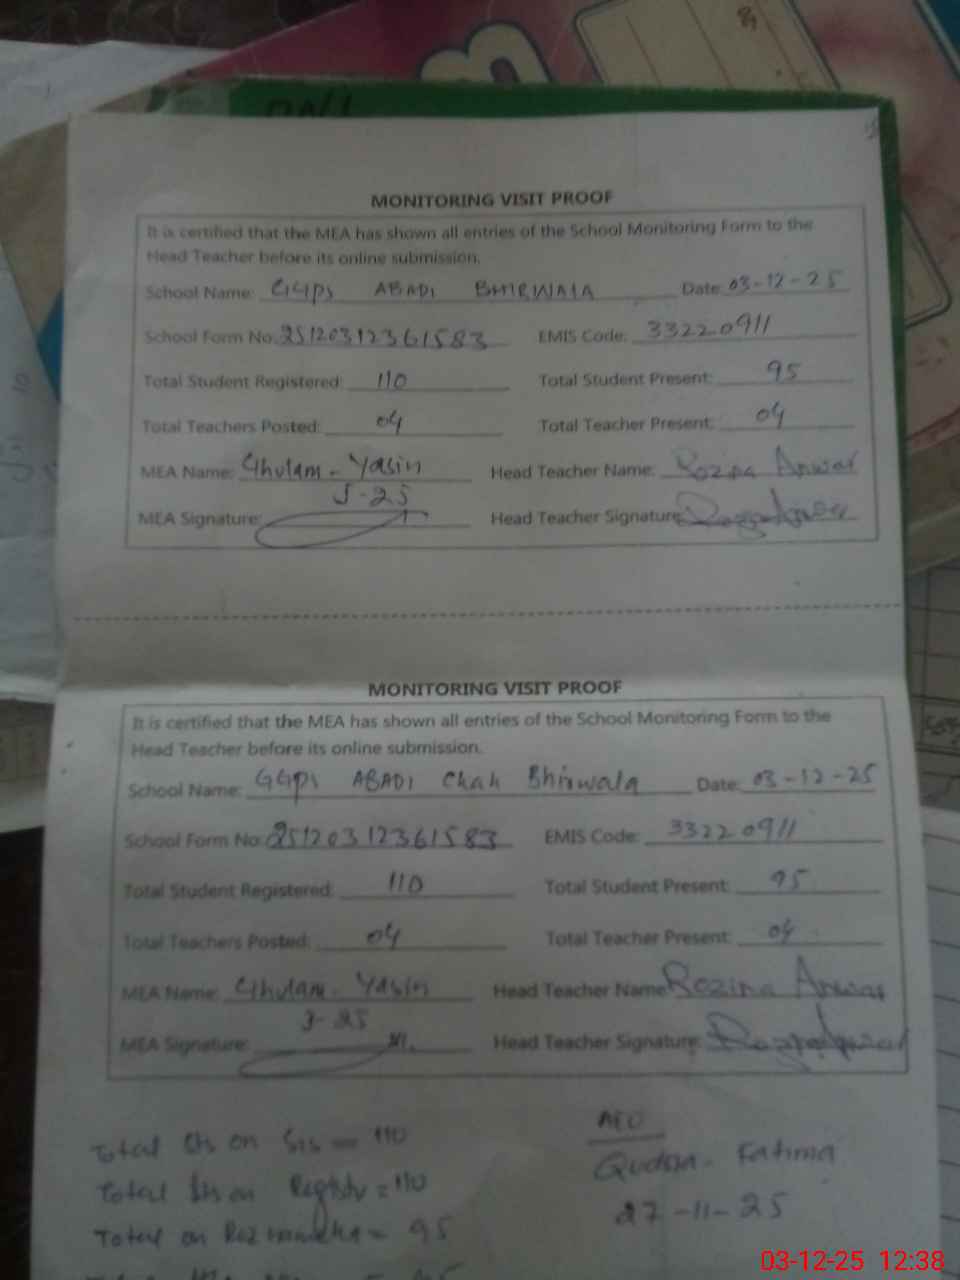 MONITORING VISIT PROOF
It is certified that the MEA has shown all entries of the School Monitoring Form to the
Head Teacher before its online submission.
School Name: GGPS ABADI BHIRWALA Date: 03-12-25
School Form No: 25120312361583 EMIS Code: 33220911
Total Student Registered: 110 Total Student Present: 95
Total Teachers Posted: 04 Total Teacher Present: 04
MEA Name: Ghulam - Yasin Head Teacher Name: Rozina Anwar
J-25
MEA Signature: Head Teacher Signature:
MONITORING VISIT PROOF
It is certified that the MEA has shown all entries of the School Monitoring Form to the
Head Teacher before its online submission.
School Name: GGPS ABADI Chah Bhirwala Date: 03-12-25
School Form No: 25120312361583 EMIS Code: 33220911
Total Student Registered: 110 Total Student Present: 95
Total Teachers Posted: 04 Total Teacher Present: 04
MEA Name: Ghulam - Yasin Head Teacher Name: Rozina Anwar
J-25
MEA Signature: Head Teacher Signature:
Total Sts on SIS = 110
AEO
Total Sts on = 110
Qudsia - Fatima
Total on = 95
27-11-25
03-12-25 12:38